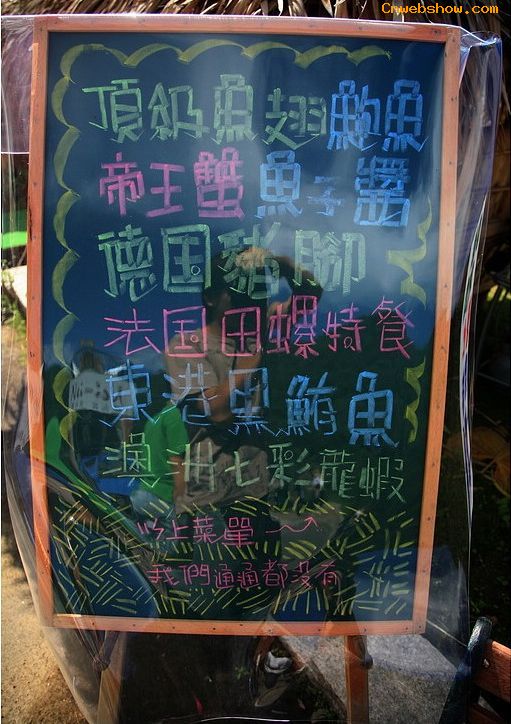 Cnwebshow.com
頂級魚翅鮑魚
帝王蟹魚子醬
德国豬腳
法国田螺特餐
東港黑鮪魚
澳洲七彩龍蝦
以上菜單
我們通通都沒有